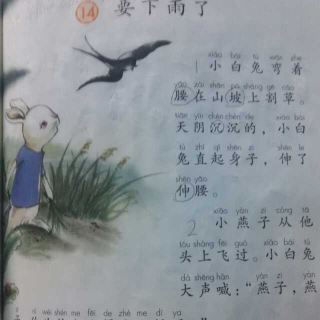 14 要下雨了
xiǎo bái tù wān zhe
1 小白兔弯着
yāo zài shān pō shàng gē cǎo
腰在山坡上割草。
tiān yīn chén chén de xiǎo bái
天阴沉沉的，小白
tù zhí qǐ shēn zi shēn le
兔直起身子，伸了
shēn yāo
伸腰。
xiǎo yàn zi cóng tā
2 小燕子从他
tóu shàng fēi guò xiǎo bái tù
头上飞过。小白兔
dà shēng hǎn yàn zi yàn
大声喊：“燕子，燕
zi wèi shén me fēi de zhè me dī ya